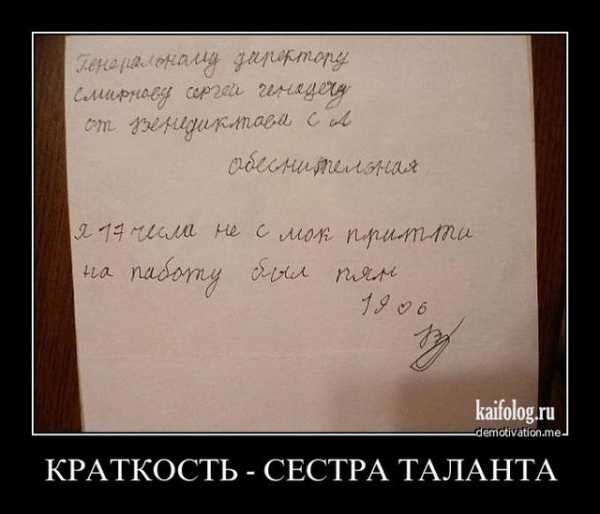 Генеральному директору
смирнову сергей генадеву
от венедиктова с л
обеснительная
я 17 числа не с мок притти
на паботу был пян
19 06
kaifolog.ru
demotivation.me
КРАТКОСТЬ - СЕСТРА ТАЛАНТА